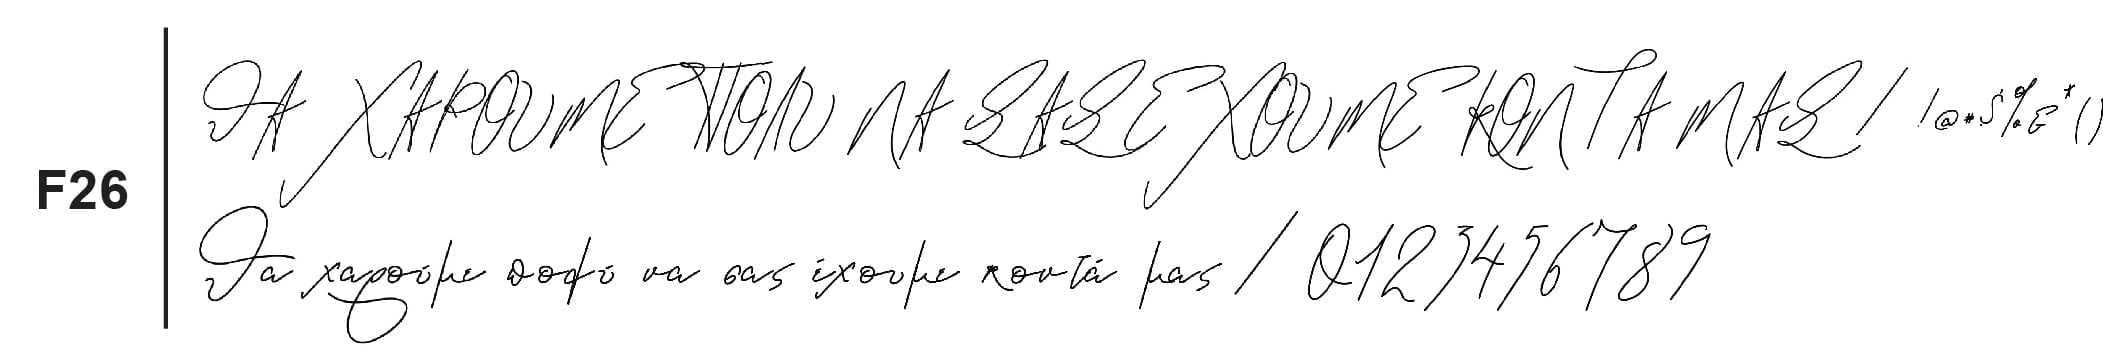 ΘΑ ΧΑΡΟΥΜΕ ΠΟΛΥ ΝΑ ΣΑΣ ΕΧΟΥΜΕ ΚΟΝΤΑ ΜΑΣ / !@*$%&*()
F26
Θα χαρούμε πολύ να σας έχουμε κοντά μας / 0123456789